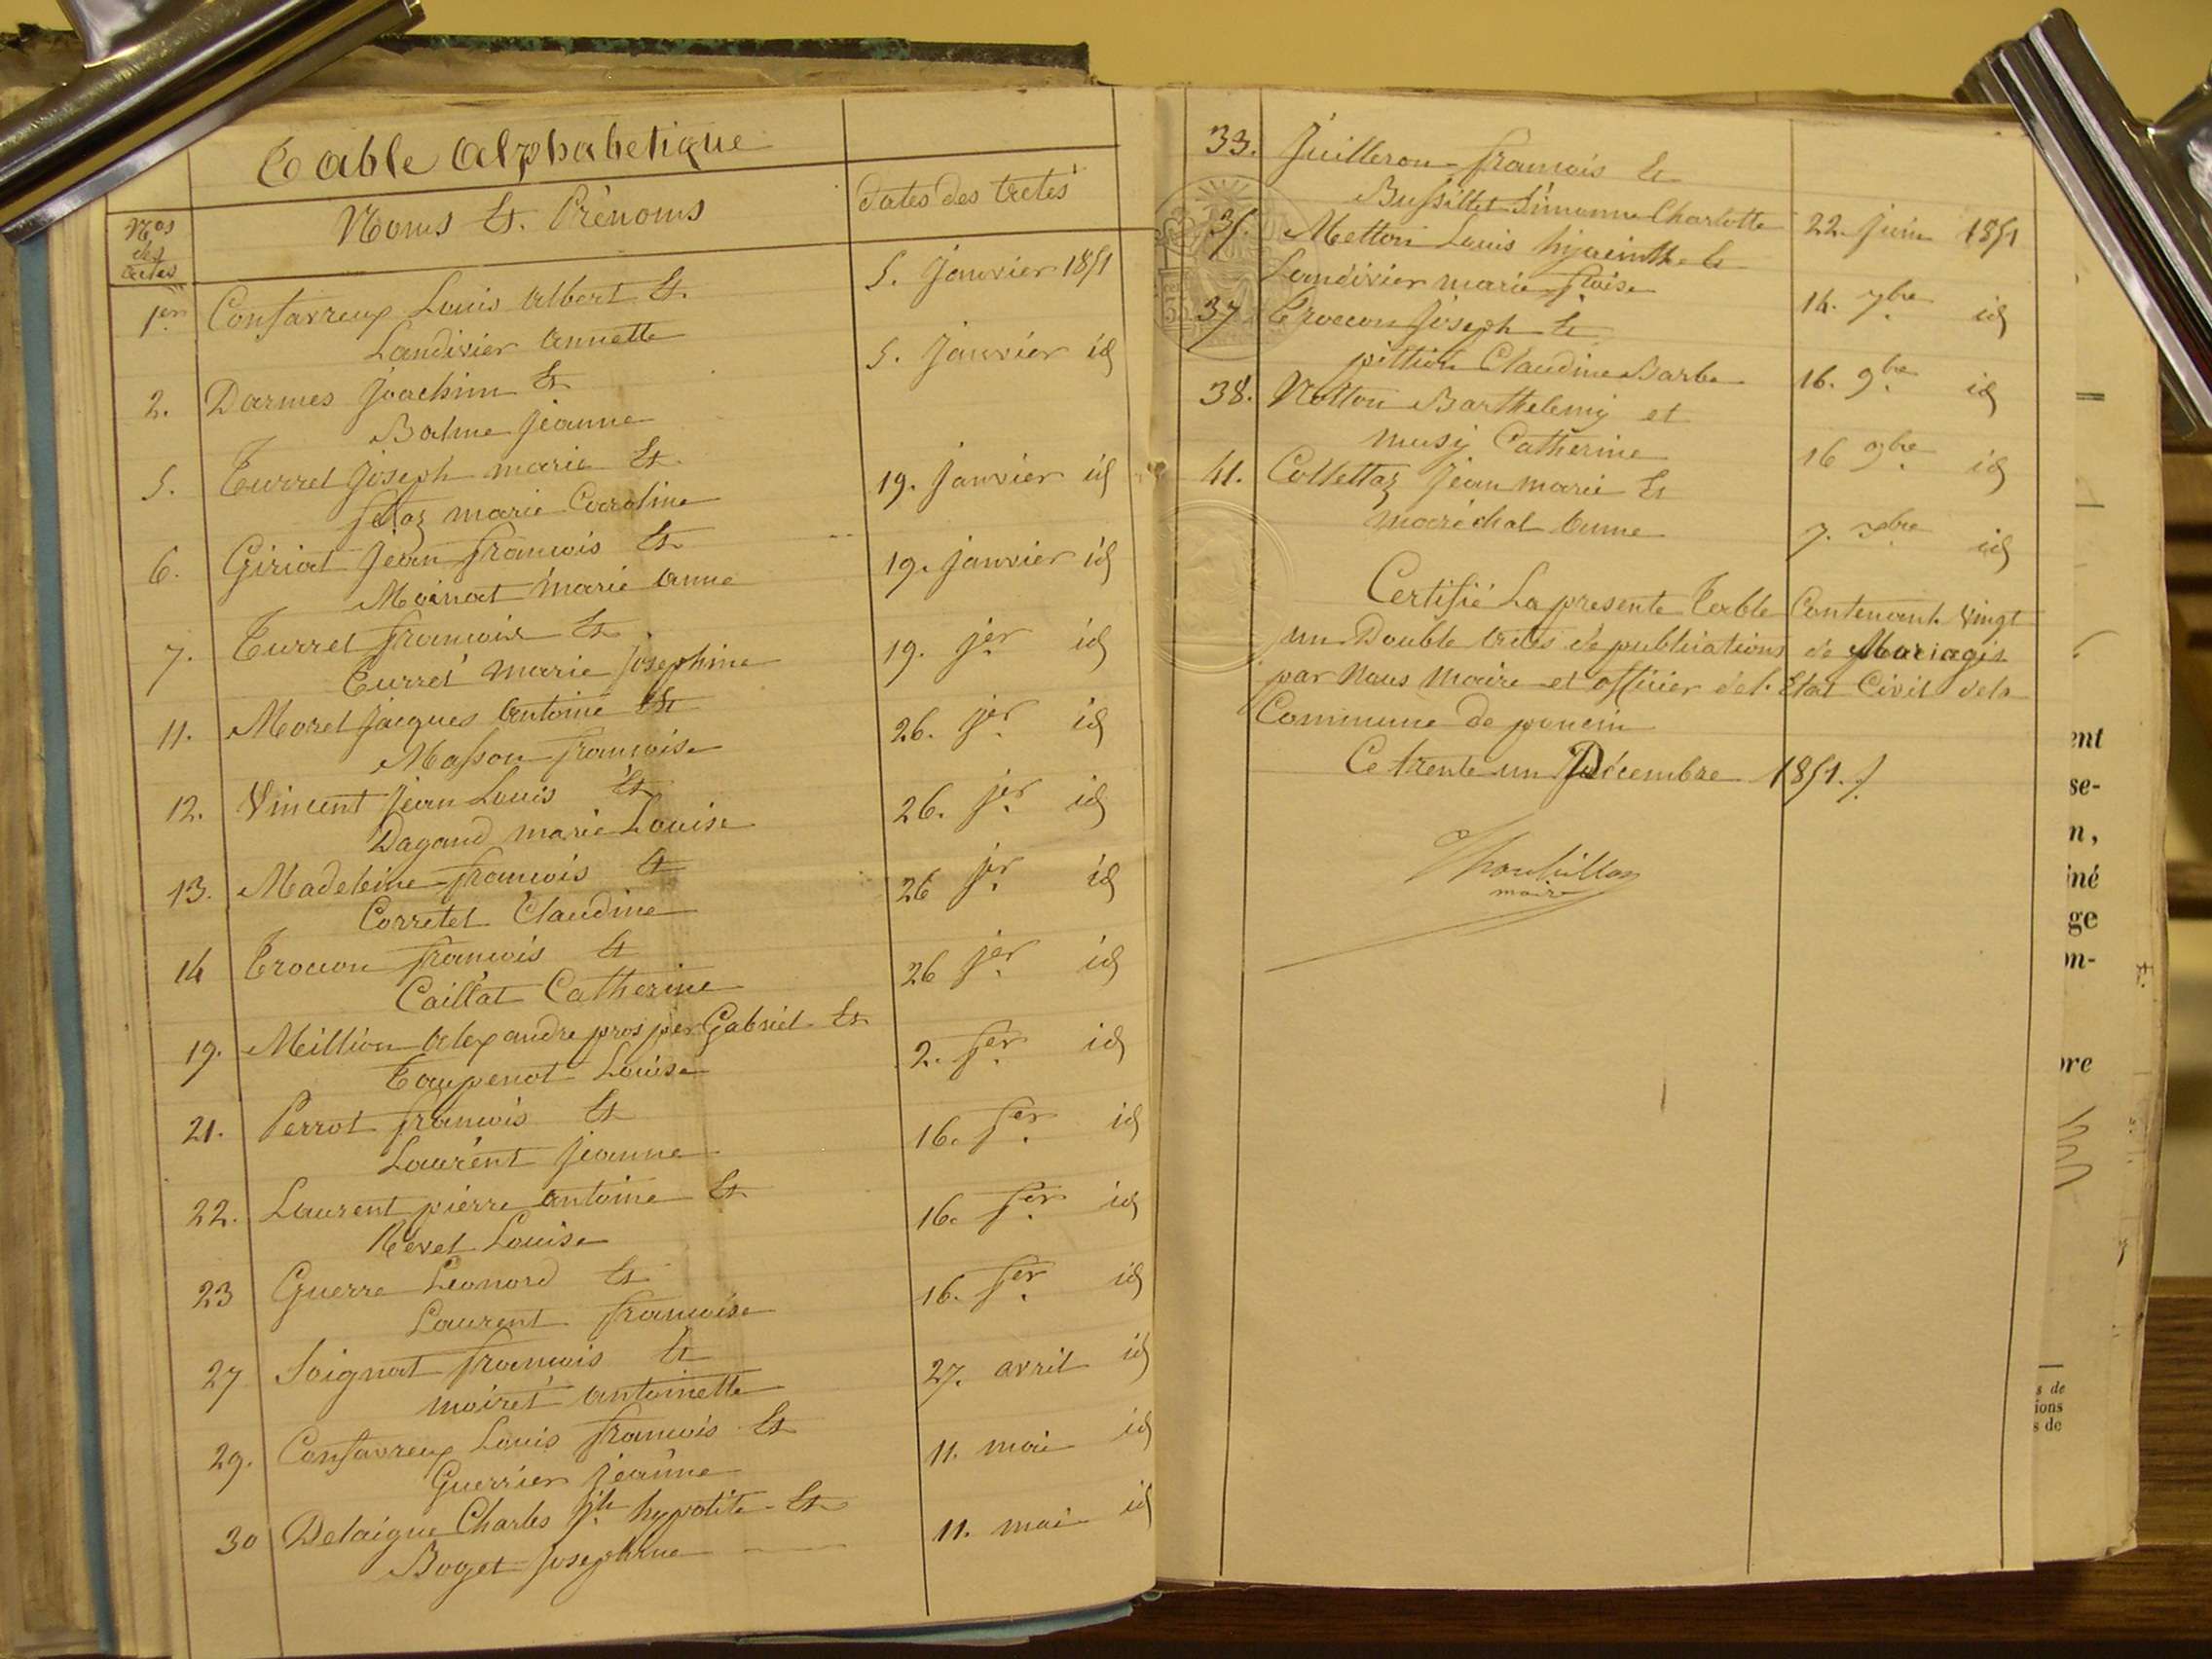 Table Alphabetique
Nos des actes
Noms Et Prénoms
Dates des Actes
1er Confavreux Louis Albert Et 5. Janvier 1851
Landivier Annette
2. Darmes Joachim Et 5. Janvier id
Balme Jeanne
5. Turrel Joseph marie Et 19. Janvier id
marie Caroline
6. Giriat Jean francois Et 19. Janvier id
Moinat marie anne
7. Turrel francois Et 19. jer id
Turrel marie Josephine
11. Morel Jacques Antoine Et 26. jer id
Masson francoise
12. Vincent Jean Louis Et 26. jer id
Dagand marie Louise
13. Madeleine francois Et 26 jer id
Corretel Claudine
14 Trocon francois Et 26 jer id
Caillat Catherine
19. Meillion Alexandre prosper Gabriel Et 2. fer id
Taupenot Louise
21. Perrot francois Et 16. fer id
Laurent Jeanne
22. Laurent pierre antoine Et 16. fer id
Revel Louise
23 Guerre Leonard Et 16. fer id
Laurent francoise
27 Soignat francois Et 27. avril id
moiret antoinette
29. Confavreux Louis francois Et 11. mai id
Guerrier Jeanne
30 Delaigue Charles jh hypolite Et 11. mai id
Boget Josephine
33. Juilleron francois Et
Bussillet Simonne Charlotte 22. Juin 1851
35. Metton Louis hyacinthe Et
Landivier marie 14. 7bre id
37 Trocon Joseph Et
Claudine Barbe 16. 9bre id
38. Notton Barthelemy et
musy Catherine 16 9bre id
41. Collettaz Jean marie Et
maréchal Anne 7. Xbre id
Certifié La presente Table Contenant Vingt
un Double actes de publications de Mariages
par Nous Maire et officier del. Etat Civil dela
Commune de poncin
Ce trente un Décembre 1851.
maire
ent
se-
n,
iné
ge
on-
re
s de
ions
s de